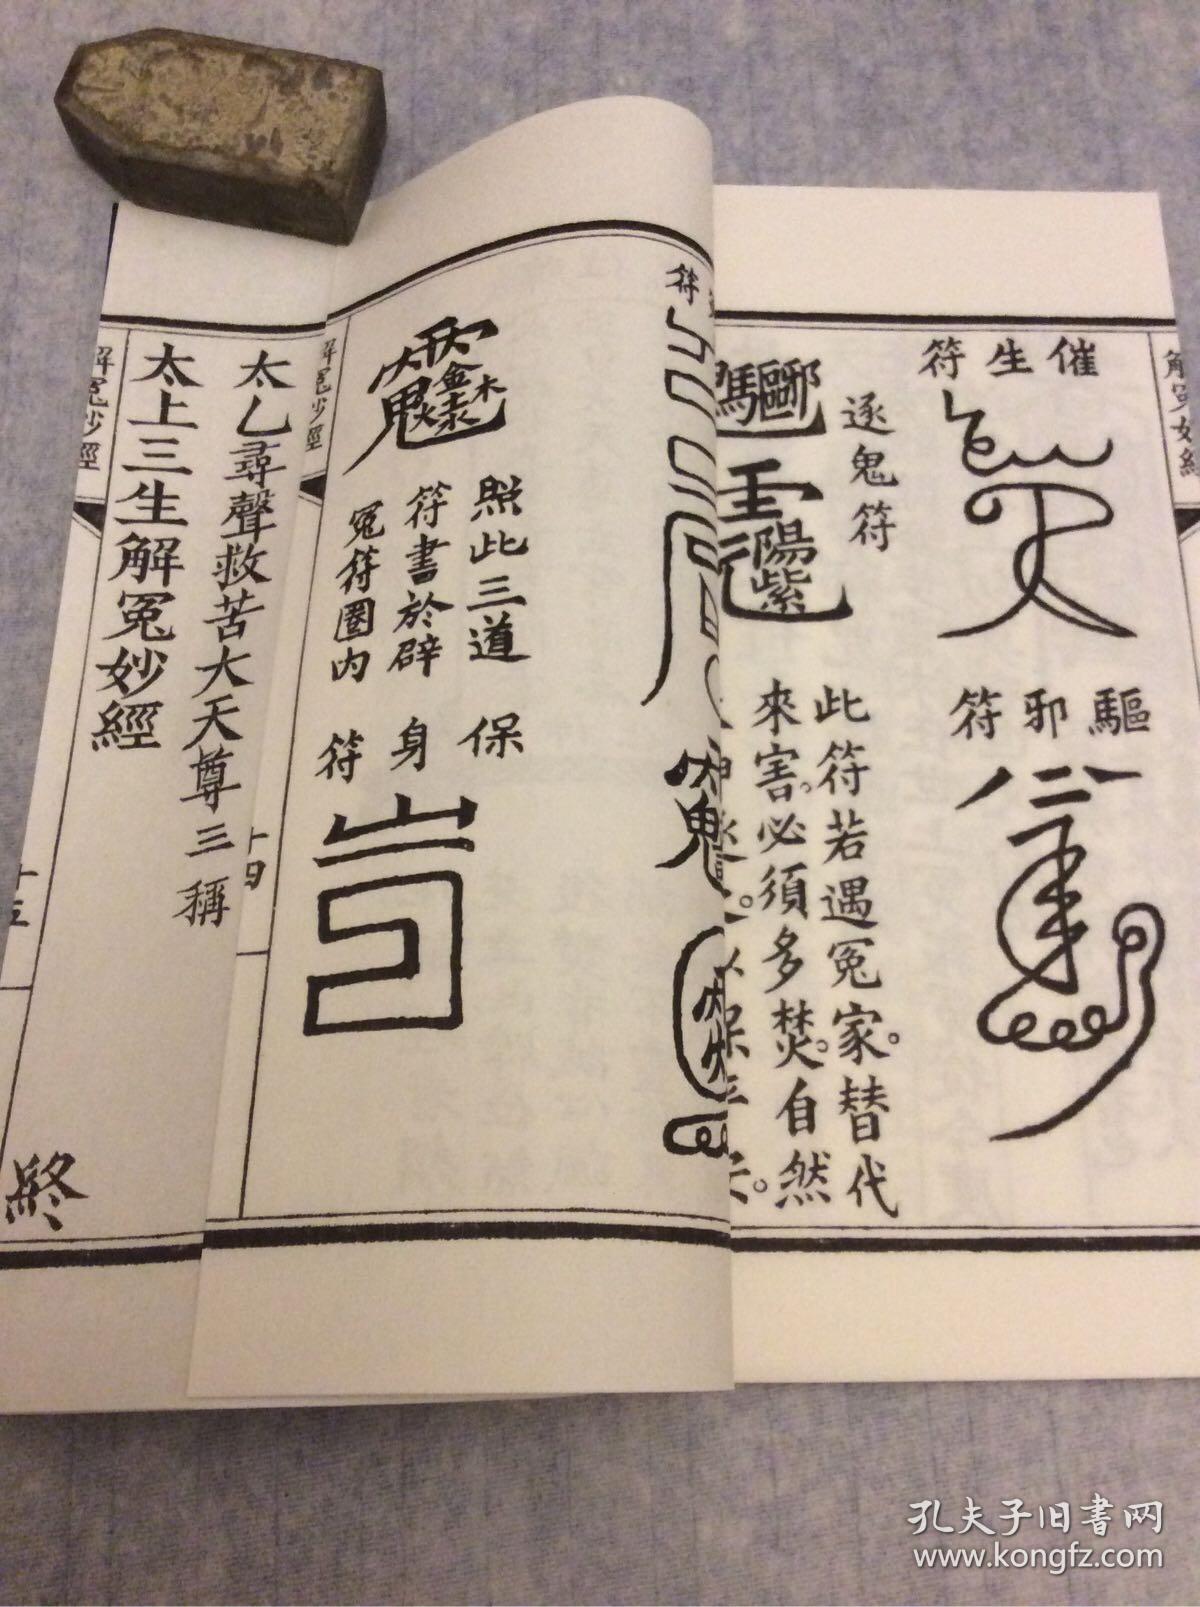 解冤妙經
催生符
驅邪符
逐鬼符
此符若遇冤家。替代
來害。必須多焚。自然
符
照此三道
符書於辟
冤符圈内
保身符
解冤妙經
十四
太乙尋聲救苦大天尊三稱
太上三生解冤妙經
終
解冤妙經
十五
孔夫子旧书网
www.kongfz.com